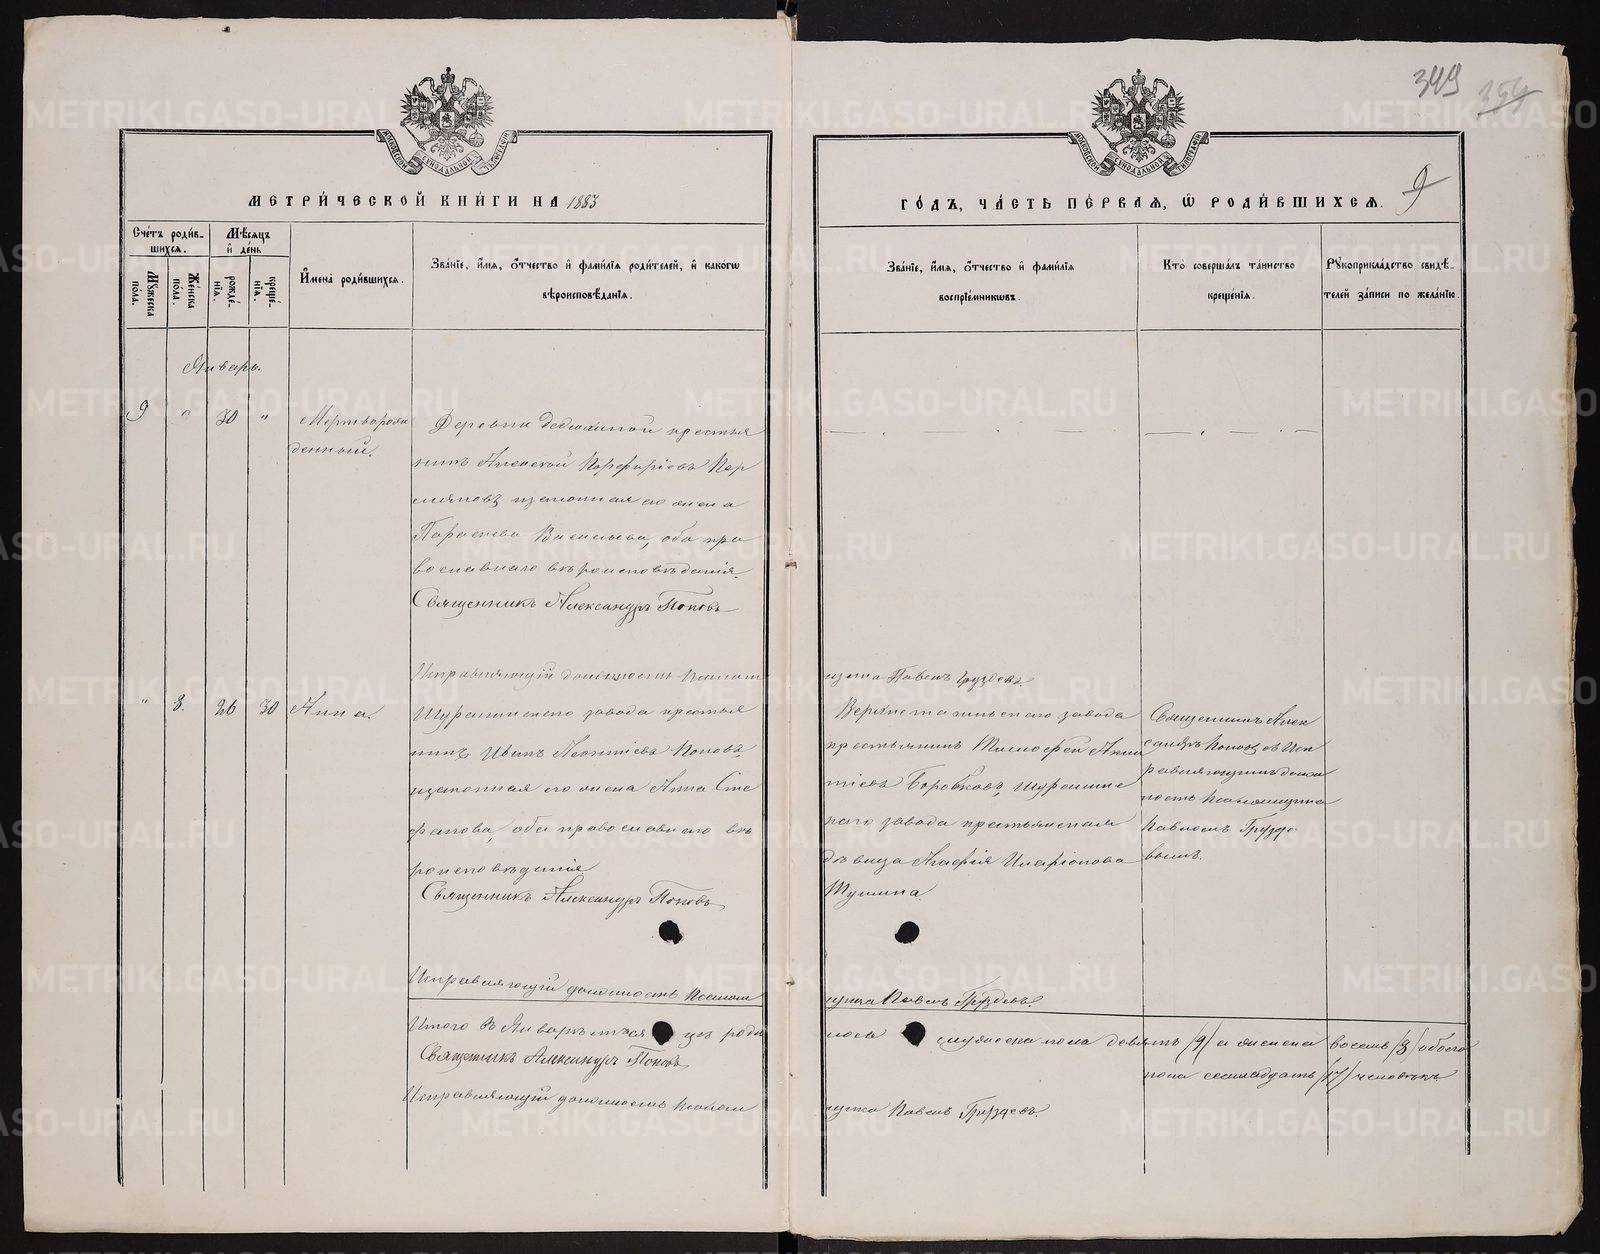 349 354
МОСКОВСКОЙ СѴНОДАЛЬНОЙ ТИПОГРАФІИ
МОСКОВСКОЙ СѴНОДАЛЬНОЙ ТИПОГРАФІИ
МЕТРИ́ЧЕСКОЙ КНИ́ГИ НА 1883
ГО́ДЪ, ЧА́СТЬ ПЕ́РВАѦ, Ѡ РОДИ́ВШИХСѦ. 9
Сче́тъ роди́в-
шихсѧ.
Мѣ́сѧцъ
и де́нь
Мꙋ́жеска
по́ла.
Же́нска
по́ла.
рожде́-
нїѧ.
креще́-
нїѧ.
И҆мена̀ роди́вшихсѧ.
Зва́нїе, и҆́мѧ, ѻ҆́тчество и҆ фамилїѧ роди́телей, и҆ како́гѡ
вѣроисповѣ́данїѧ.
Зва́нїе, и҆́мѧ, ѻ҆́тчество и҆ фами́лїѧ
воспрїе́мникѡвъ.
Кто̀ соверша́лъ та́инство
креще́нїѧ.
Рꙋкоприкла́дство свидѣ́-
телей за́писи по жела́нїю.
Январь.
9 " 30 " Мертворож
денный.
Деревни крестья
нинъ Алексей Порфирьевъ
законная его жена
Параскева Васильева, оба пра
вославнаго вѣроисповѣданія.
Священникъ Александръ Поповъ
Исправляющій должность Псалом
щика Павелъ Груздевъ.
" 8. 26 30 Анна.
завода крестья
нинъ Иванъ Леонтіевъ Поповъ,
и законная его жена Анна Сте
фанова, оба православнаго вѣ
роисповѣданія
Священникъ Александръ Поповъ
завода
крестьянинъ Тимофей
завода крестьянская
дѣвица Агафія Иларіонова
Священникъ Алек
сандръ Поповъ съ Исп
равляющимъ долж
ность Псаломщика
Павломъ Грузде
вымъ.
Исправляющій должность Псалом
щика Павелъ Груздевъ.
Итого въ Январѣ мѣсяцѣ роди
лось мужеска пола девять /9/ а женска восемь /8/ обоего
пола семнадцать /17/ человѣкъ.
Священникъ Александръ Поповъ
Исправляющій должность Псалом
щика Павелъ Груздевъ.
METRIKI.GASO-URAL.RU